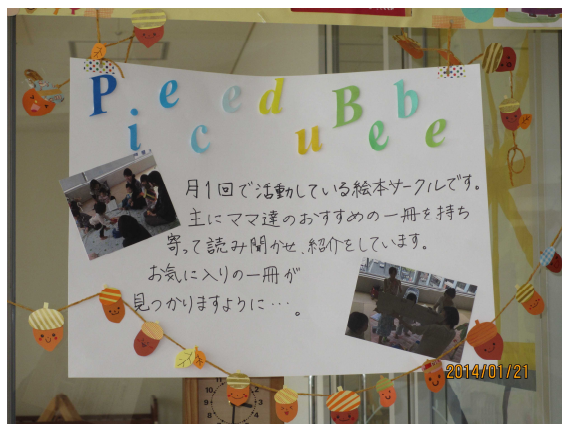 Piece du Bebe
月1回で活動している絵本サークルです。
主にママ達のおすすめの一冊を持ち
寄って読み聞かせ、紹介をしています。
お気に入りの一冊が
見つかりますように…。
2014/01/21